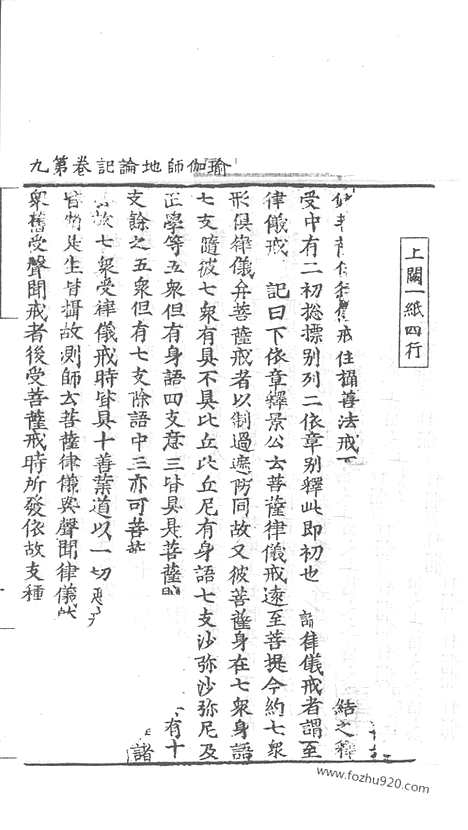 瑜伽師地論記卷第九
上闕一紙四行
戒住攝善法戒下 結之釋
受中有二初揔摽別列二依章別釋此即初也 論律儀戒者謂至
律儀戒 記曰下依章釋景公云菩薩律儀戒遠至菩提今約七衆
形俱律儀弁菩薩戒者以制過遮防同故又彼菩薩身在七衆身語
七支隨彼七衆有具不具比丘比丘尼有身語七支沙弥沙弥尼及
正學等五衆但有身語四支意三皆具是菩薩 有十
支餘之五衆但有七支除語中三亦可菩 諸
故七衆受律儀戒時皆具十善業道以一切
生皆攝故測師云菩薩律儀與聲聞律儀
衆舊受聲聞戒者後受菩薩戒時所發依故支種
www.fozhu920.com